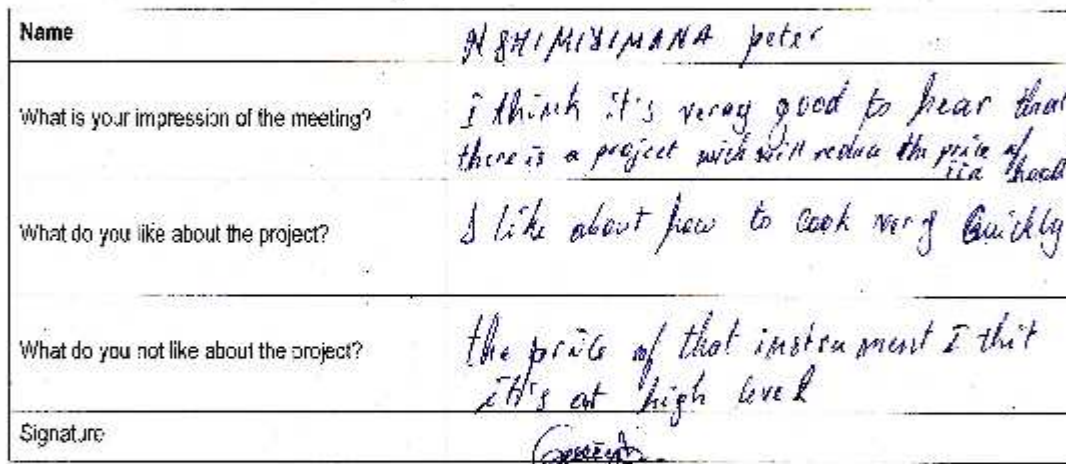 Name
NSHIMIYIMANA peter
What is your impression of the meeting?
I think it's verey good to hear that
there is a project wich will reduce the price of
What do you like about the project?
I like about how to cook very Quickly
What do you not like about the project?
the price of that instrument I thit
itt's at high level
Signature